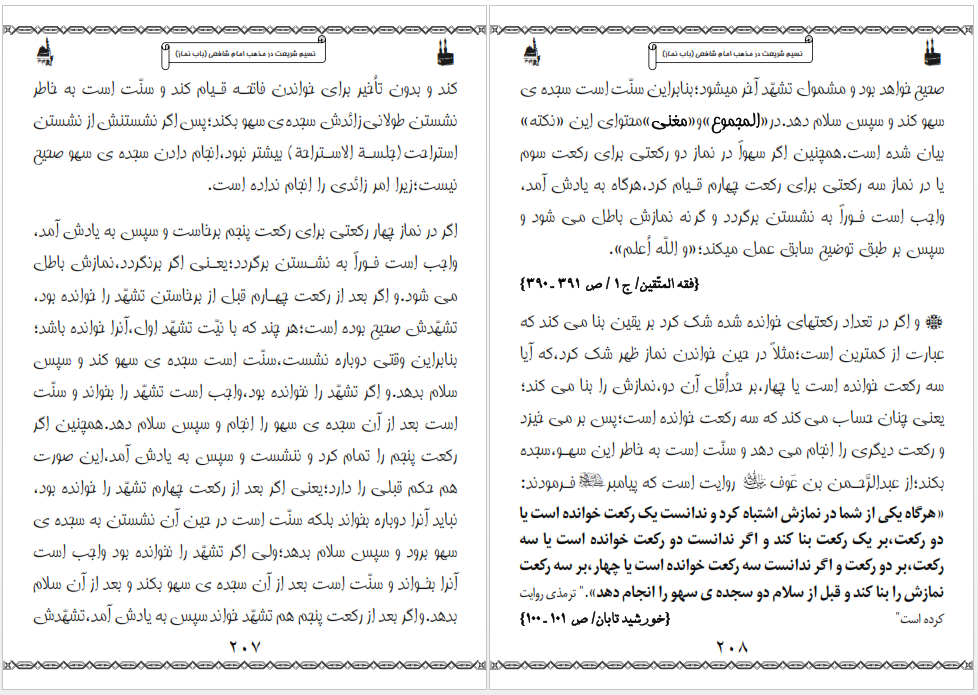 نسیم شریعت در مذهب امام شافعی (باب نماز)
کند و بدون تأخیر برای خواندن فاتحه قیام کند و سنّت است به خاطر
نشستن طولانی زائدش سجده ی سهو بکند؛پس اگر نشستنش از نشستن
استراحت (جلسة الاستراحة) بیشتر نبود،انجام دادن سجده ی سهو صحیح
نیست؛زیرا امر زائدی را انجام نداده است.
اگر در نماز چهار رکعتی برای رکعت پنجم برخاست و سپس به یادش آمد،
واجب است فوراً به نشستن برگردد؛یعنی اگر برنگردد،نمازش باطل
می شود.و اگر بعد از رکعت چهارم قبل از برخاستن تشهّد را خوانده بود،
تشهّدش صحیح بوده است؛هر چند که با نیّت تشهّد اول،آنرا خوانده باشد؛
بنابراین وقتی دوباره نشست،سنّت است سجده ی سهو کند و سپس
سلام بدهد.و اگر تشهّد را نخوانده بود،واجب است تشهّد را بخواند و سنّت
است بعد از آن سجده ی سهو را انجام و سپس سلام دهد.همچنین اگر
رکعت پنجم را تمام کرد و ننشست و سپس به یادش آمد،این صورت
هم حکم قبلی را دارد؛یعنی اگر بعد از رکعت چهارم تشهّد را خوانده بود،
نباید آنرا دوباره بخواند بلکه سنّت است در حین آن نشستن به سجده ی
سهو برود و سپس سلام بدهد؛ولی اگر تشهّد را نخوانده بود واجب است
آنرا بخواند و سنّت است بعد از آن سجده ی سهو بکند و بعد از آن سلام
بدهد.واگر بعد از رکعت پنجم هم تشهّد خواند سپس به یادش آمد،تشهّدش
۲۰۷
نسیم شریعت در مذهب امام شافعی (باب نماز)
صحیح خواهد بود و مشمول تشهّد آخر میشود؛بنابراین سنّت است سجده ی
سهو کند و سپس سلام دهد.در«المجموع»و«مغنی»محتوای این «نکته»
بیان شده است.همچنین اگر سهواً در نماز دو رکعتی برای رکعت سوم
یا در نماز سه رکعتی برای رکعت چهارم قیام کرد،هرگاه به یادش آمد،
واجب است فوراً به نشستن برگردد و گرنه نمازش باطل می شود و
سپس بر طبق توضیح سابق عمل میکند؛«و اللّه أعلم».
{فقه المتّقین/ ج۱ / ص ۳۹۱ ـ ۳۹۰}
و اگر در تعداد رکعتهای خوانده شده شک کرد بر یقین بنا می کند که
عبارت از کمترین است؛مثلاً در حین خواندن نماز ظهر شک کرد،که آیا
سه رکعت خوانده است یا چهار،بر حدأقل آن دو،نمازش را بنا می کند؛
یعنی چنان حساب می کند که سه رکعت خوانده است؛پس بر می خیزد
و رکعت دیگری را انجام می دهد و سنّت است به خاطر این سهو،سجده
بکند؛از عبدالرَّحمن بن عَوف روایت است که پیامبر ﷺ فرمودند:
«هرگاه یکی از شما در نمازش اشتباه کرد و ندانست یک رکعت خوانده است یا
دو رکعت،بر یک رکعت بنا کند و اگر ندانست دو رکعت خوانده است یا سه
رکعت،بر دو رکعت و اگر ندانست سه رکعت خوانده است یا چهار،بر سه رکعت
نمازش را بنا کند و قبل از سلام دو سجده ی سهو را انجام دهد»." ترمذی روایت
کرده است" {خورشید تابان/ ص ۱۰۱ ـ ۱۰۰}
۲۰۸